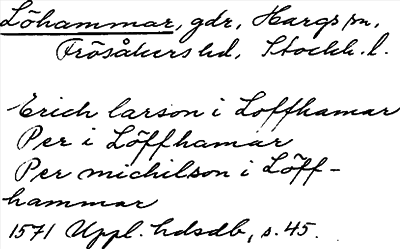 Löhammar, gdr, Hargs sn,
Frösåkers hd, Stockh. l.
Erich larson i Loffhamar
Per i Löffhamar
Per michilson i Löff-
hammar
1571 Uppl. hdsdb, s. 45.